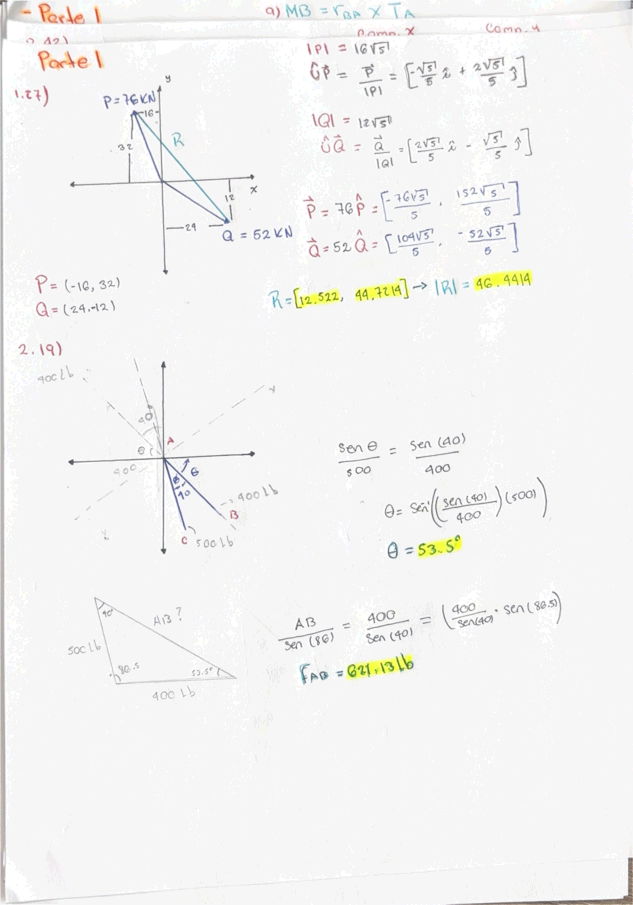 - Parte 1
a) MB = rBA × TA
Comp. Y
Parte 1
1.27)
y
P=76KN
16
R
32
x
12
24
Q = 52 KN
P = (-16, 32)
Q = (24.-12)
|P| = 16√5
ÛP = P/|P| = [-√5/5 î + 2√5/5 ĵ]
|Q| = 12√5
ÛQ = Q/|Q| = [2√5/5 î - √5/5 ĵ]
P = 76P̂ = [-76√5/5 , 152√5/5]
Q = 52 Q̂ = [104√5/5 , -52√5/5]
R = [12.522, 44.7214] → |R| = 46.4414
2.19)
400 lb
A
θ
500
40
400 lb
B
C
500 lb
sen θ/500 = sen (40)/400
θ = sen⁻¹((sen(40)/400)(500))
θ = 53.5°
40°
AB?
500 Lb
86.5
53.5°
400 lb
AB/sen (86) = 400/sen (40) = (400/sen(40) · sen (86.5))
FAB = 621.13 lb